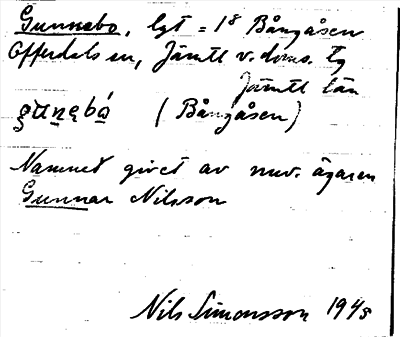 Gunnebo, lgt = 1⁸ Bångåsen
Offerdals sn, Jämtl v. doms. tg
Jämtl län
(Bångåsen)
Namnet givet av nuv. ägaren
Gunnar Nilsson
Nils Simonsson 1945